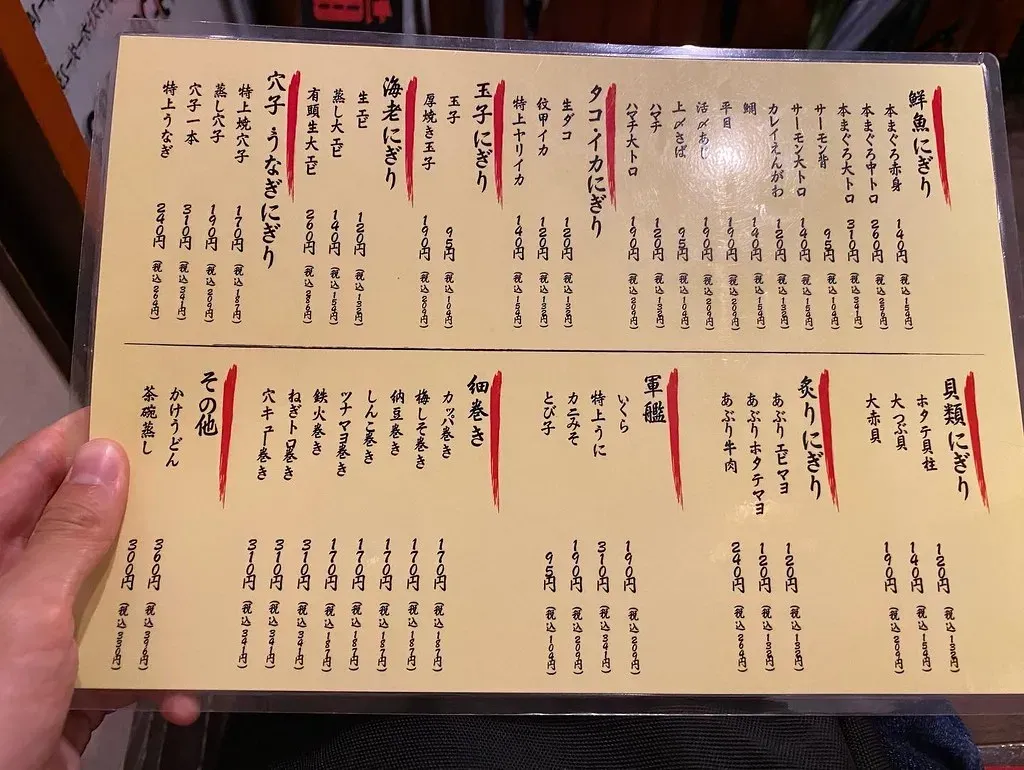 鮮魚にぎり
本まぐろ赤身 140円 (税込154円)
本まぐろ中トロ 260円 (税込286円)
本まぐろ大トロ 310円 (税込341円)
サーモン背 95円 (税込104円)
サーモン大トロ 140円 (税込154円)
カレイえんがわ 120円 (税込132円)
鯛 140円 (税込154円)
平目 190円 (税込209円)
活〆あじ 190円 (税込209円)
上〆さば 95円 (税込104円)
ハマチ 120円 (税込132円)
ハマチ大トロ 190円 (税込209円)
タコ・イカにぎり
生ダコ 120円 (税込132円)
紋甲イカ 120円 (税込132円)
特上ヤリイカ 140円 (税込154円)
玉子にぎり
玉子 95円 (税込104円)
厚焼き玉子 190円 (税込209円)
海老にぎり
生エビ 120円 (税込132円)
蒸し大エビ 140円 (税込154円)
有頭生大エビ 260円 (税込286円)
穴子・うなぎにぎり
特上焼穴子 170円 (税込187円)
蒸し穴子 190円 (税込209円)
穴子一本 310円 (税込341円)
特上うなぎ 240円 (税込264円)
貝類にぎり
ホタテ貝柱 120円 (税込132円)
大つぶ貝 140円 (税込154円)
大赤貝 190円 (税込209円)
炙りにぎり
あぶりエビマヨ 120円 (税込132円)
あぶりホタテマヨ 120円 (税込132円)
あぶり牛肉 240円 (税込264円)
軍艦
いくら 190円 (税込209円)
特上うに 310円 (税込341円)
カニみそ 190円 (税込209円)
とび子 95円 (税込104円)
細巻き
カッパ巻き 170円 (税込187円)
梅しそ巻き 170円 (税込187円)
納豆巻き 170円 (税込187円)
しんこ巻き 170円 (税込187円)
ツナマヨ巻き 170円 (税込187円)
鉄火巻き 310円 (税込341円)
ねぎトロ巻き 310円 (税込341円)
穴キュー巻き 310円 (税込341円)
その他
かけうどん 360円 (税込396円)
茶碗蒸し 300円 (税込330円)